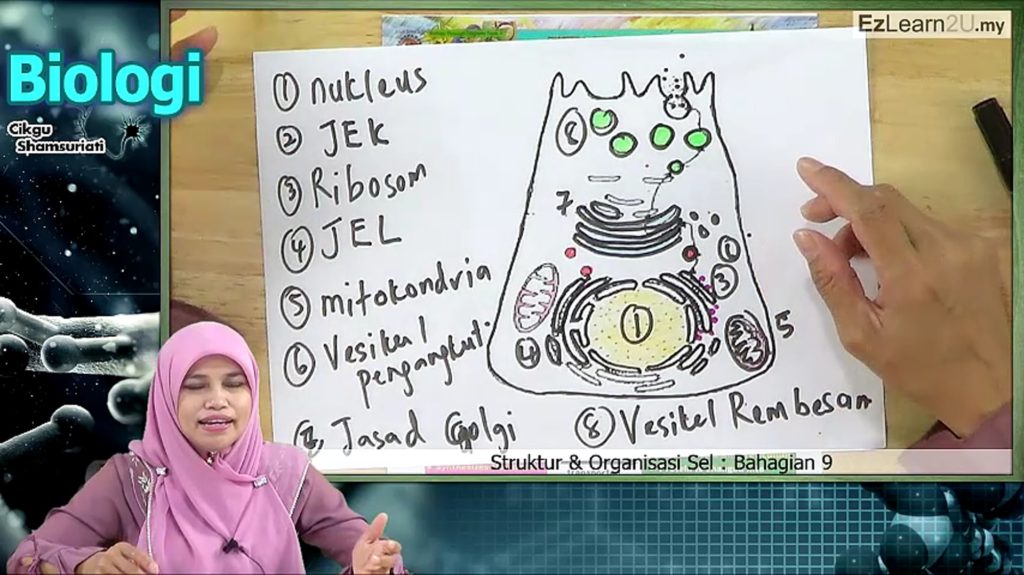 EzLearn2U.my
Biologi
Cikgu
Shamsuriati
① nukleus
② JEK
③ Ribosom
④ JEL
⑤ mitokondria
⑥ Vesikel
pengangkut
7 Jasad Golgi
⑧ Vesikel Rembesan
8
7
2
3
1
4
5
Struktur & Organisasi Sel : Bahagian 9